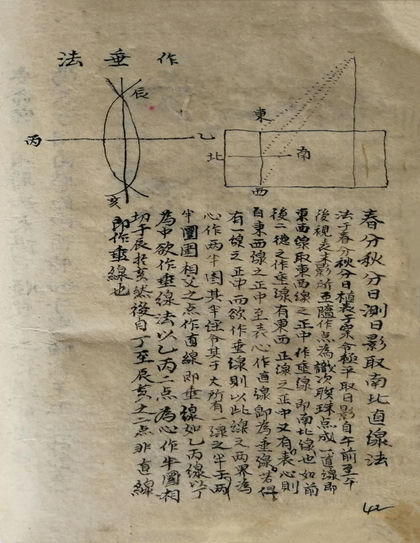 作垂法
辰
丙
乙
亥
東
北
南
西
春分秋分日測日影取南北直線法
法于春分秋分日植表于案令極平取日影自午前至午
後視表末影所至隨作点為識次聯珠点成一直線即
東西線取東西線之正中作垂線即南北線也如前
後二徳之作垂線有東西正線之正中又有表心則
自東西線之正中至表心作直線即為垂線若偶
有一線之正中而欲作垂線則以此線之兩界為
心作兩半圈其半徑令其于大所有一線之半兩
半圈圈相交之点作直線即垂線如乙丙線以丁
為中欲作垂線法以乙丙二点為心作半圈相
切于辰于亥然後自丁至辰亥之一点非直線
即作垂線也
42